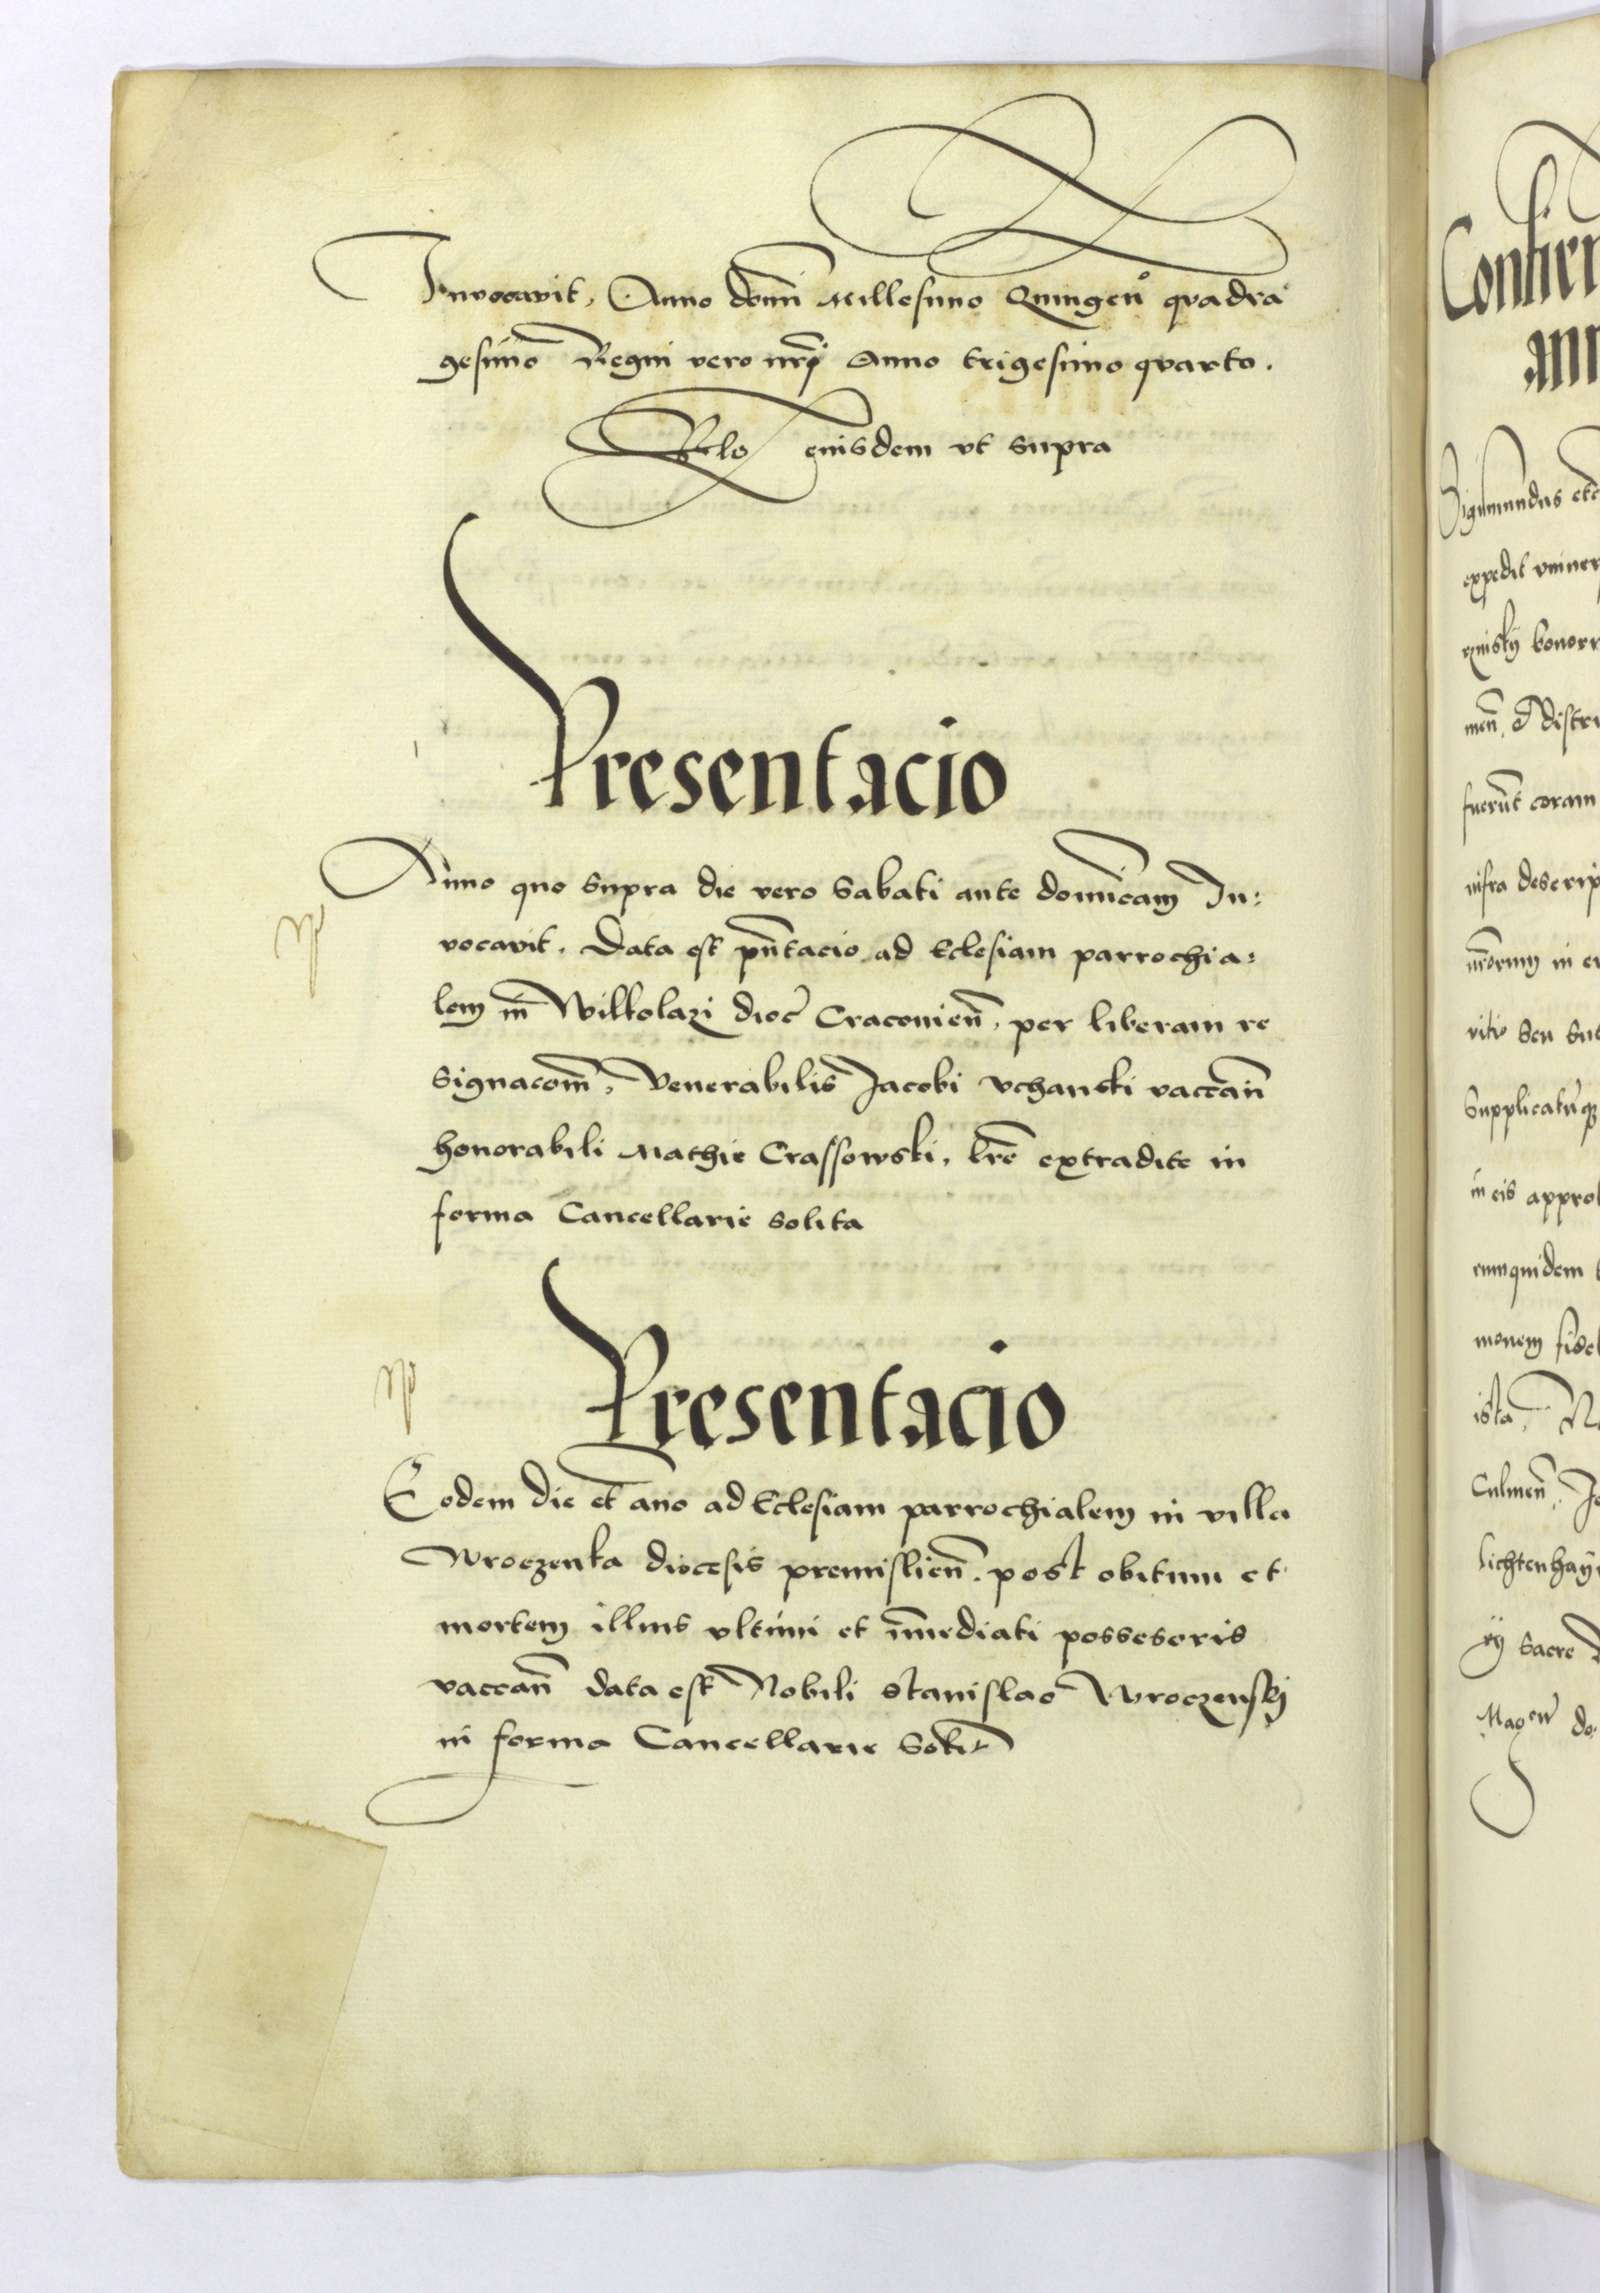 Invocavit, Anno domi Millesimo Quingeno quadra
gesimo Regni vero nri Anno trigesimo quarto.
Rlo eiusdem ut supra
Presentacio
Anno quo supra die vero Sabati ante dominicam In:
vocavit. Data est pntacio ad Eclesiam parrochia:
lem in Wilkolazi dioc Craconien, per liberam re
signacom, Venerabilis Jacobi Vchanski vaccan
honorabili Mathie Crassowski, lre extradite in
forma Cancellarie solita
Presentacio
Eodem die et ano ad Eclesiam parrochialem in villa
Wroczenka diocesis premislien. post obitum et
mortem illius ultimi et immediati possesoris
vaccan data est Nobili Stanislao Wroczensky
in forma Cancellarie Soli
Sigismundus etc
expedit
fuerut coram
infra descrip
in eis
Culmen
Sacre